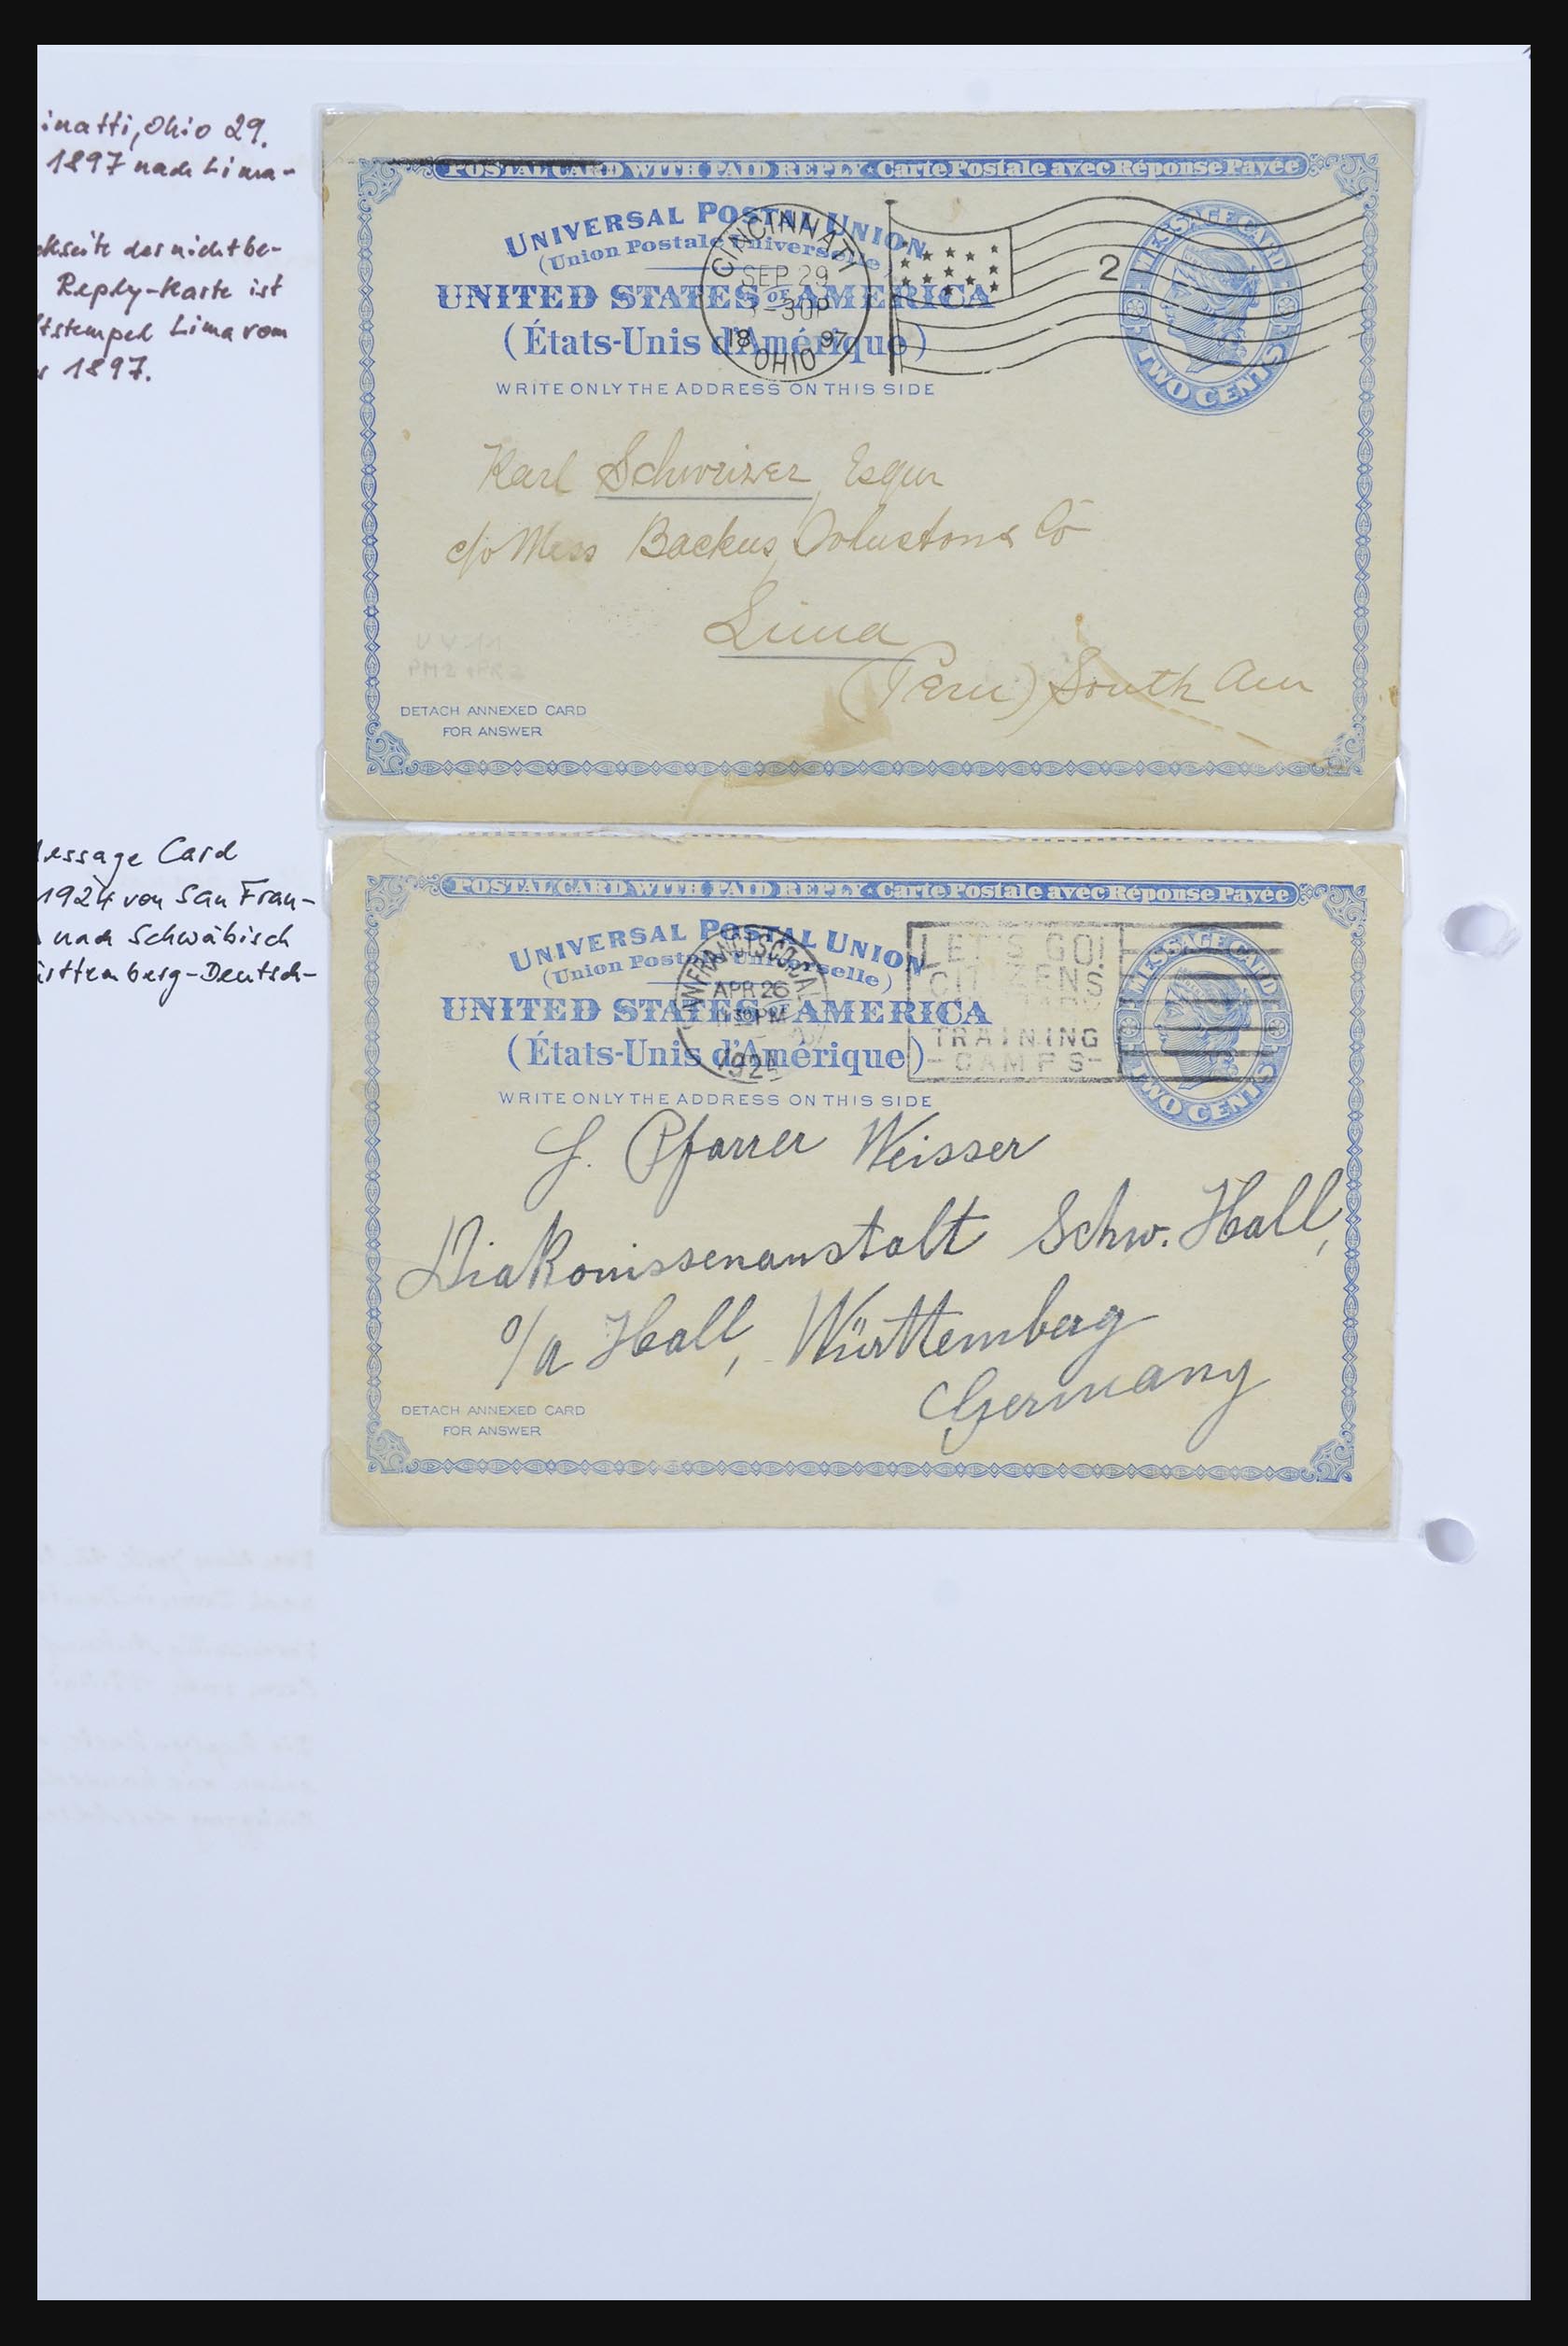 inatti, Ohio 29.
1897 nach Lima-
ckseite der nichtbe-
Reply-Karte ist
ftstempel Lima vom
1897.
POSTAL CARD WITH PAID REPLY ★ Carte Postale avec Réponse Payée
UNIVERSAL POSTAL UNION
(Union Postale Universelle)
UNITED STATES OF AMERICA
(États-Unis d'Amérique)
WRITE ONLY THE ADDRESS ON THIS SIDE
CINCINNATI
SEP 29
-30P
18 97
OHIO
2
MESSAGE CARD
TWO CENTS
Karl Schweizer, Esqur
c/o Mess Backus, Johnston & Co
Lima
(Peru) South Am
DETACH ANNEXED CARD
FOR ANSWER
Message Card
1924 von San Fran-
nach Schwäbisch
ürttemberg-Deutsch-
POSTAL CARD WITH PAID REPLY ★ Carte Postale avec Réponse Payée
UNIVERSAL POSTAL UNION
(Union Postale Universelle)
UNITED STATES OF AMERICA
(États-Unis d'Amérique)
WRITE ONLY THE ADDRESS ON THIS SIDE
SAN FRANCISCO, CAL
APR 26
1130 PM
1924
LET'S GO!
CITIZENS
TRAINING
-CAMPS-
MESSAGE CARD
TWO CENTS
H. Pfarrer Weisser
Diakonissenanstalt Schw. Hall,
o/a Hall, Württemberg
Germany
DETACH ANNEXED CARD
FOR ANSWER